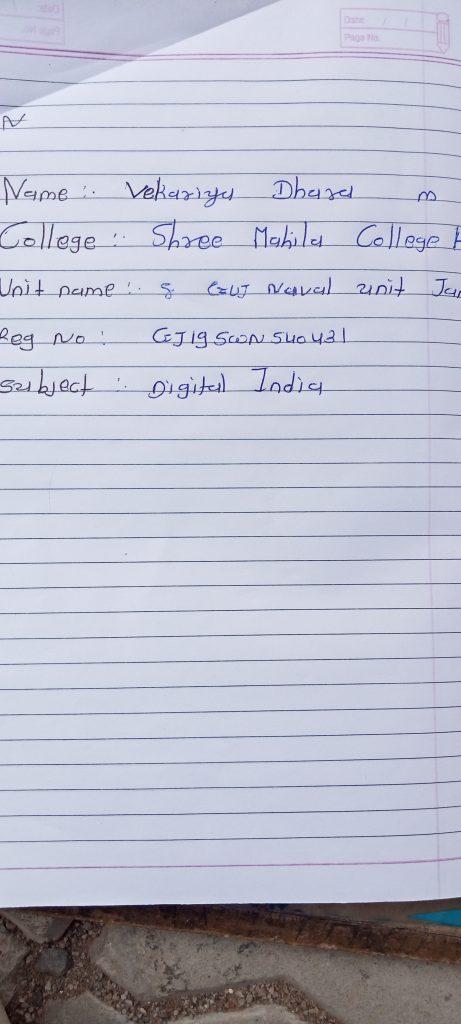 Date / /
Page No:
N
Name :- Vekariya Dhara m
College :- Shree Mahila College
Unit name :- 8 GUJ Naval unit Jam
Reg No : GJ19SWN540431
Subject :- Digital India